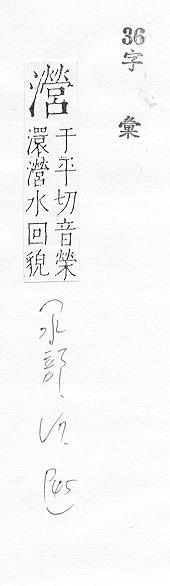 36
字彙
濴
于平切音榮
濴濴水回貌
(水部.
P45)